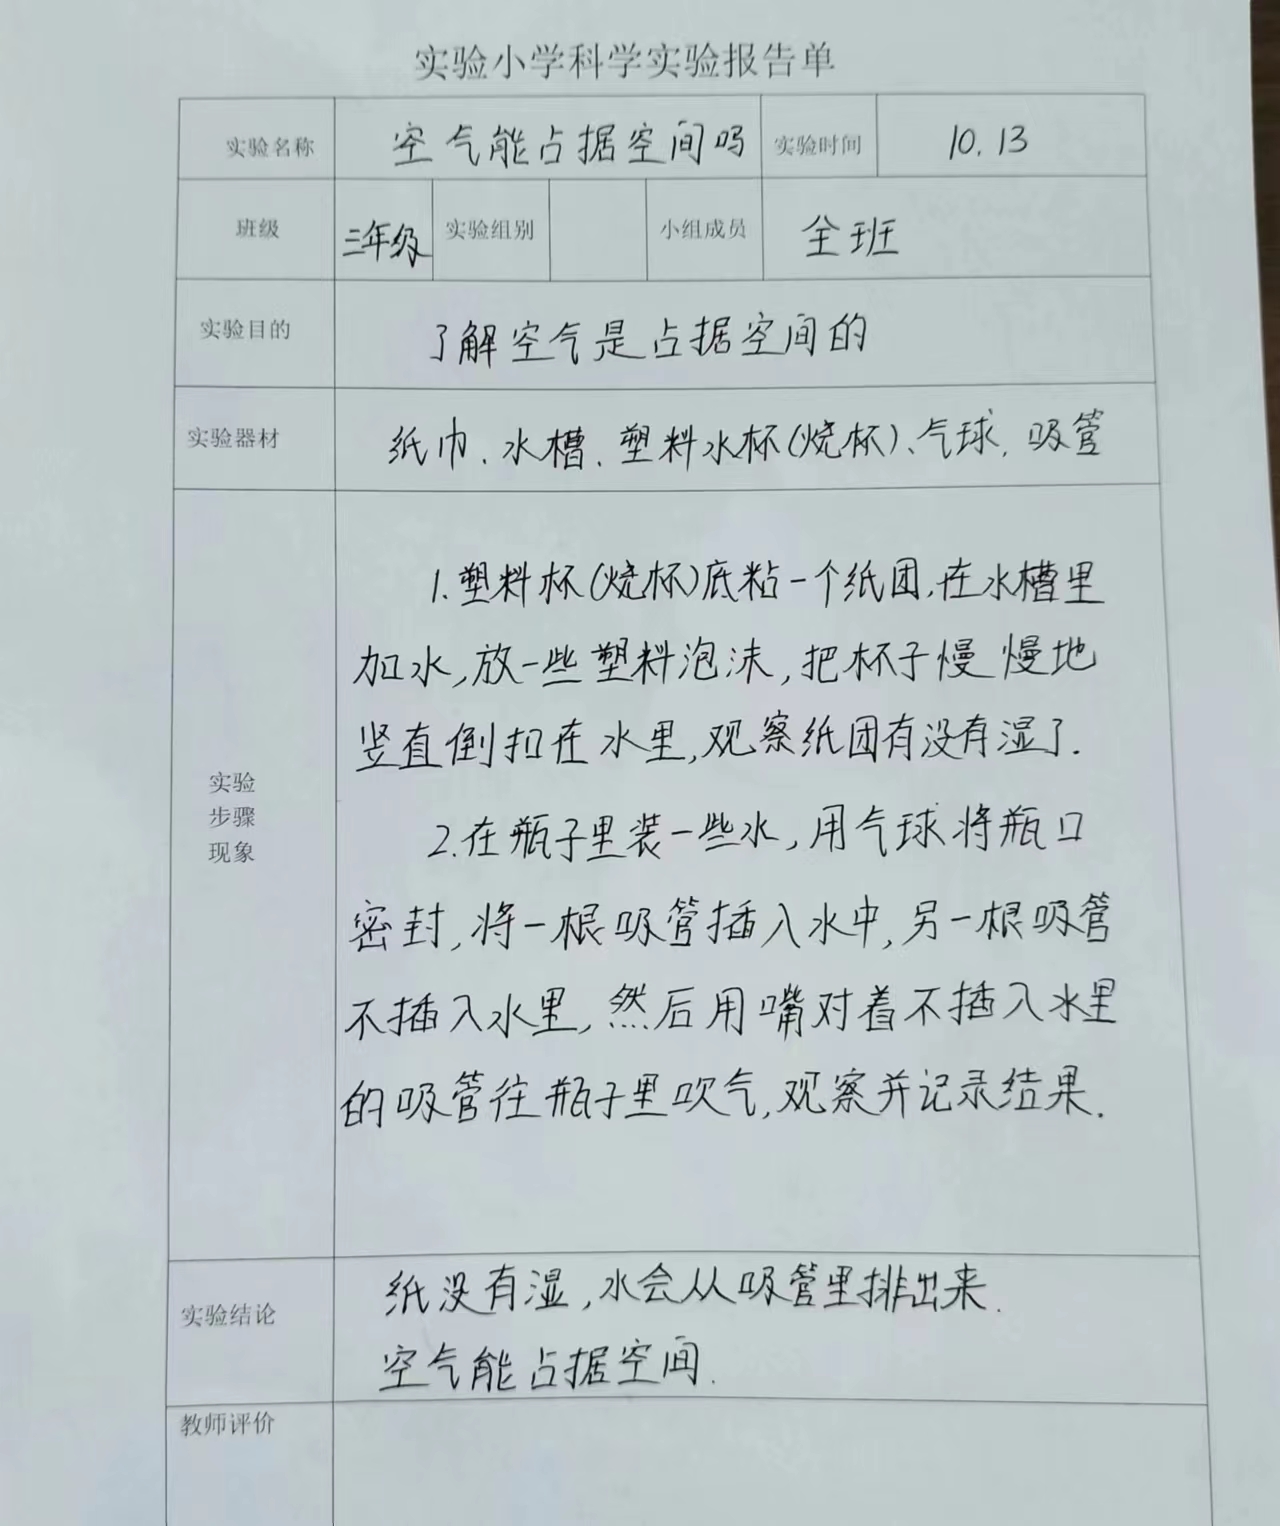 实验小学科学实验报告单
实验名称 空气能占据空间吗 实验时间 10.13
班级 三年级 实验组别 小组成员 全班
实验目的 了解空气是占据空间的
实验器材 纸巾、水槽、塑料水杯(烧杯)、气球、吸管
1.塑料杯(烧杯)底粘一个纸团,在水槽里
加水,放一些塑料泡沫,把杯子慢慢地
竖直倒扣在水里,观察纸团有没有湿了.
实验
步骤
现象
2.在瓶子里装一些水,用气球将瓶口
密封,将一根吸管插入水中,另一根吸管
不插入水里,然后用嘴对着不插入水里
的吸管往瓶子里吹气,观察并记录结果.
实验结论 纸没有湿,水会从吸管里排出来.
空气能占据空间.
教师评价